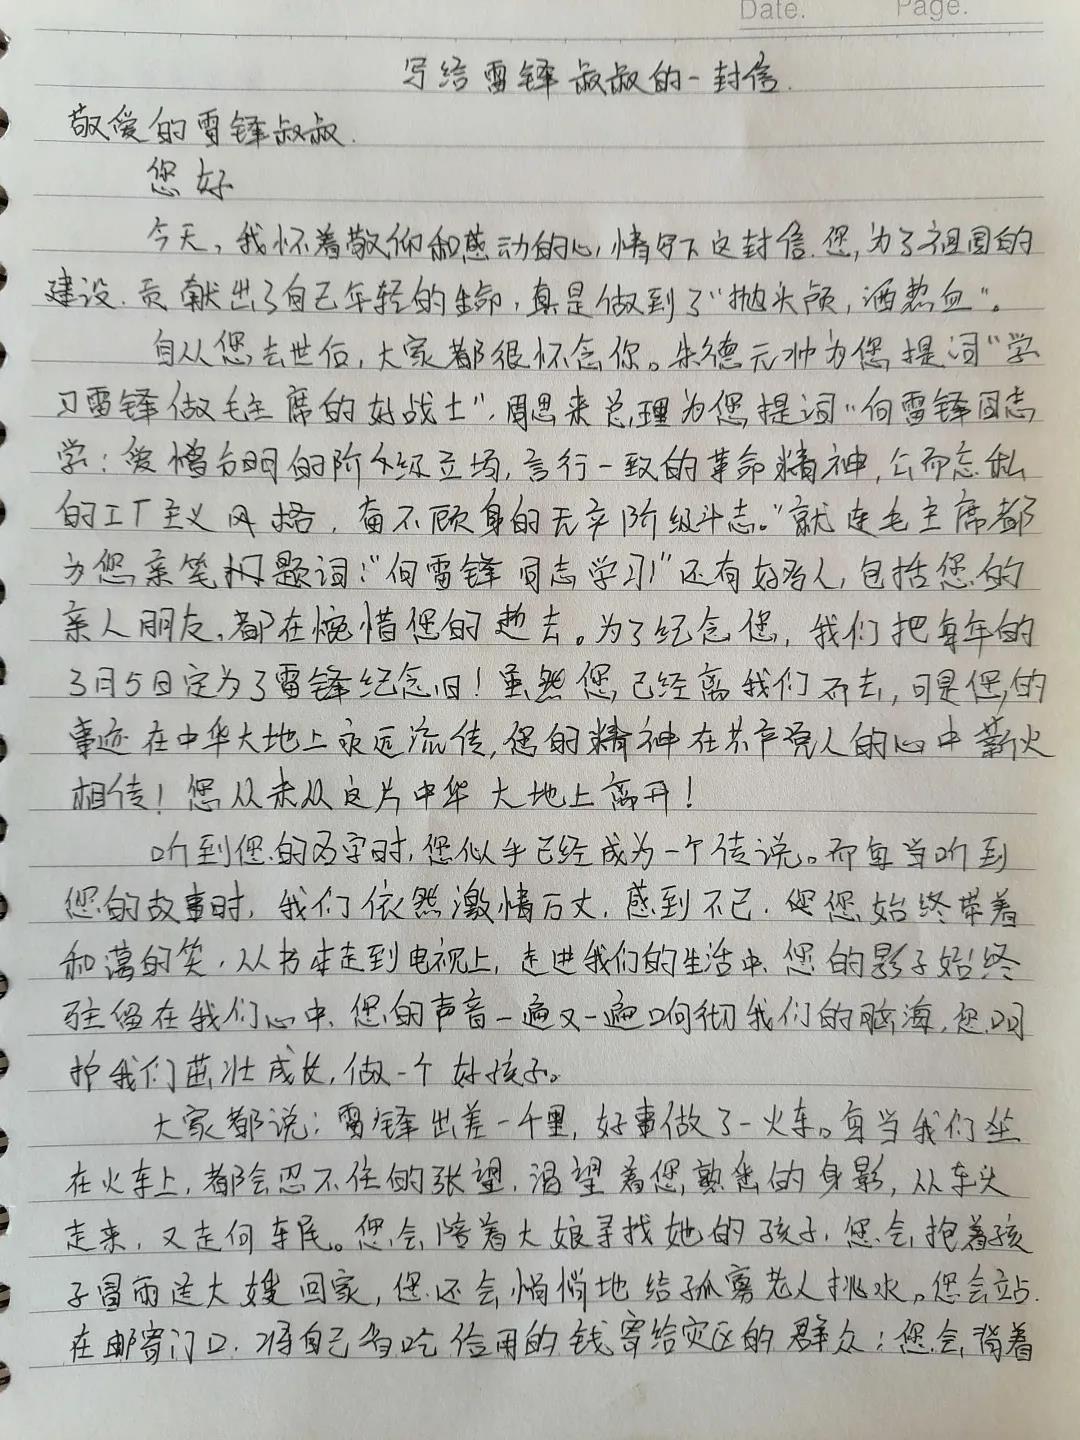 Date.	Page.
写给雷锋叔叔的一封信.
敬爱的雷锋叔叔.
您好
今天,我怀着敬仰和感动的心情写下这封信.您,为了祖国的
建设.贡献出了自己年轻的生命,真是做到了"抛头颅,洒热血"。
自从您去世后,大家都很怀念你。朱德元帅为您提词"学
习雷锋做毛主席的好战士",周恩来总理为您提词"向雷锋同志
学:爱憎分明的阶级立场,言行一致的革命精神,公而忘私
的工厂主义风格,奋不顾身的无产阶级斗志。"就连毛主席都
为您亲笔题词:"向雷锋同志学习!"还有好多人,包括您的
亲人朋友,都在惋惜您的逝去。为了纪念您,我们把每年的
3月5日定为了雷锋纪念日!虽然您已经离我们而去,可是您的
事迹在中华大地上永远流传,您的精神在共产党人的心中薪火
相传!您从未从这片中华大地上离开!
听到您的名字时,您似乎已经成为一个传说。而每当听到
您的故事时,我们依然激情万丈,感到不已.您始终带着
和蔼的笑,从书本走到电视上,走进我们的生活中.您的影子始终
驻留在我们心中.您的声音一遍又一遍响彻我们的脑海,您呵
护我们茁壮成长,做一个好孩子。
大家都说:雷锋出差一千里,好事做了一火车。每当我们坐
在火车上,都会忍不住的张望,渴望着您熟悉的身影,从车头
走来,又走向车尾。您会陪着大娘寻找她的孩子,您会抱着孩
子冒雨送大嫂回家,您还会悄悄地给孤寡老人挑水。您会站
在邮寄门口.将自己省吃俭用的钱寄给灾区的群众;您会背着